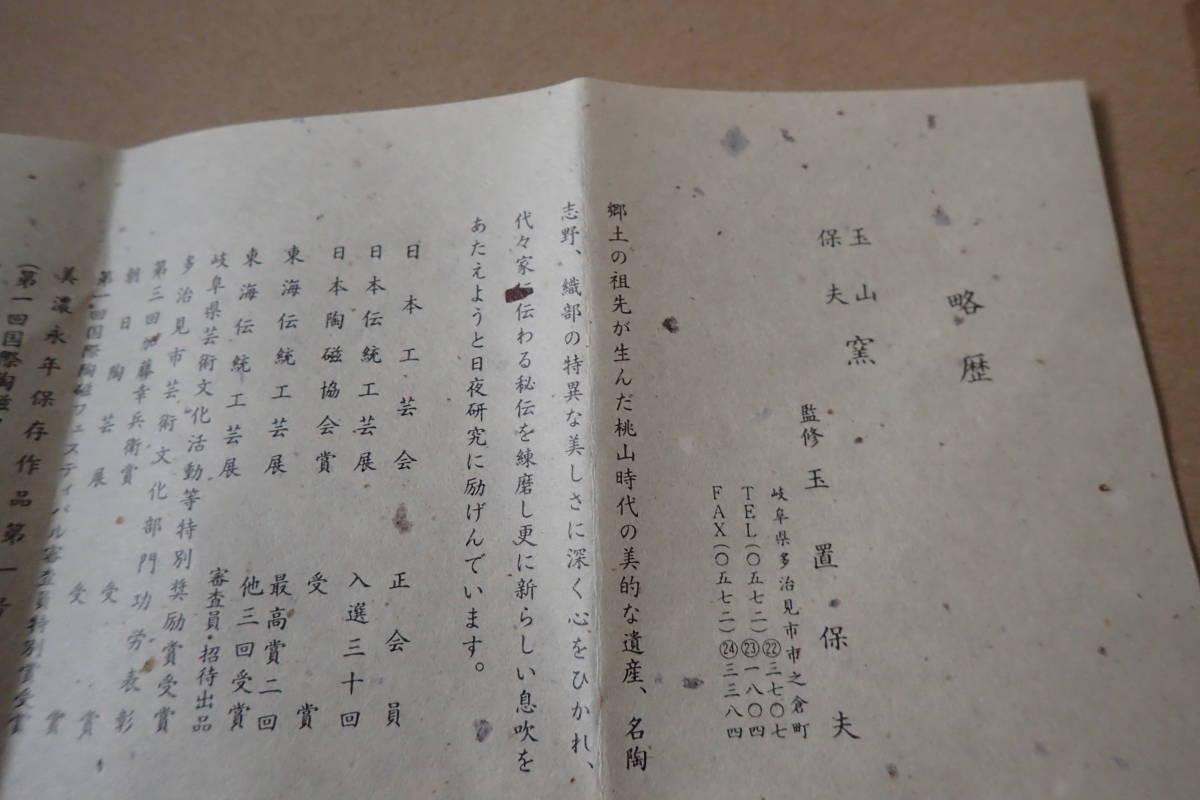 略歴
玉山窯
保夫
監修 玉置保夫
岐阜県多治見市市之倉町
TEL(〇五七二)㉒三七〇七
㉓一八〇四
FAX(〇五七二)㉔三三八四
郷土の祖先が生んだ桃山時代の美的な遺産、名陶
志野、織部の特異な美しさに深く心をひかれ、
代々家に伝わる秘伝を練磨し更に新らしい息吹を
あたえようと日夜研究に励げんでいます。
日本工芸会 正会員
日本伝統工芸展 入選三十回
日本陶磁協会賞 受賞
東海伝統工芸展 最高賞二回
他三回受賞
東海伝統工芸展 審査員・招待出品
岐阜県芸術文化活動等特別奨励賞受賞
多治見市芸術文化部門功労表彰
第三回加藤幸兵衛賞 受賞
朝日陶芸展 受賞
第一回国際陶磁フェスティバル審査員特別賞受賞
美濃永年保存作品第一号
(第一回国際陶磁